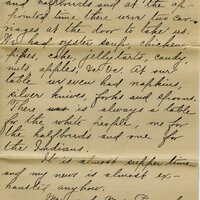 and halfbreeds and at the ap-
pointed time there were two car-
riages at the door to take us.
We had oyster soup, chicken,
pies, cake, jelly tarts, candy
nuts, apples,
table we even had napkins,
silver knives forks and spoons.
There was is always a table
for the white people, one for
the halfbreeds and one for
the Indians.
It is almost supper time
and my news is almost ex-
hausted anyhow.